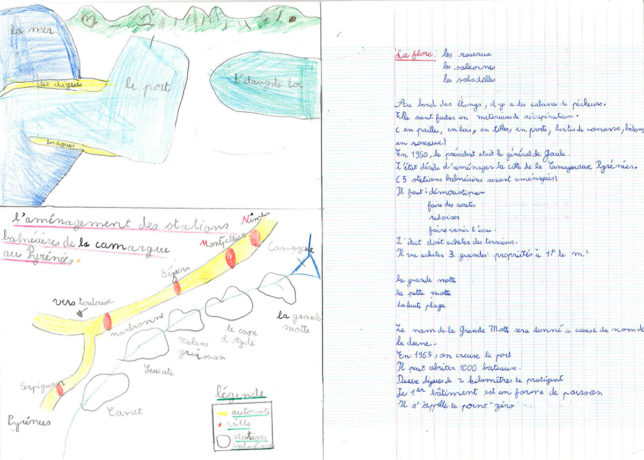 la mer
les digues
le port
L'étang de l'or
les digues
l'aménagement des stations
balnéaires de la camargue
au Pyrénées.
Nîmes
Montpellier
Camargue
Béziers
vers toulouse
narbonne
la grande
motte
le cape
d'Agde
Valras
gruissan
Leucate
Perpignan
Canet
Pyrénées
légende
autoroute
ville
station
balnéaire
La flore: les roseaux
les salicornes
les saladelles
Au bord des étangs, il y a des cabanes de pêcheurs.
Elle sont faites en matériaux de récupération.
( en pailles, en bois, en tôles, en ports, boites de conserve, bidons,
en roseaux)
En 1960, le président était le général de Gaule.
L'état décide d'aménager la côte de la Camargue aux Pyrénées.
(5 stations balnéaires seront aménagées)
Il faut: démoustiquer
faire des routes
reboiser
faire venir l'eau.
L'État doit acheter des terrains.
Il va acheter 3 grandes propriétés à 1F le m²
la grande motte
la petite motte
la haute plage
Le nom de la Grande Motte sera donné a cause du nom de
la dune.
En 1965, on creuse le port
Il peut abriter 1000 bateaux.
Deux digues de 2 kilomètres le protègent
Le 1er bâtiment est en forme de poisson
Il s'appelle le point "zéro"